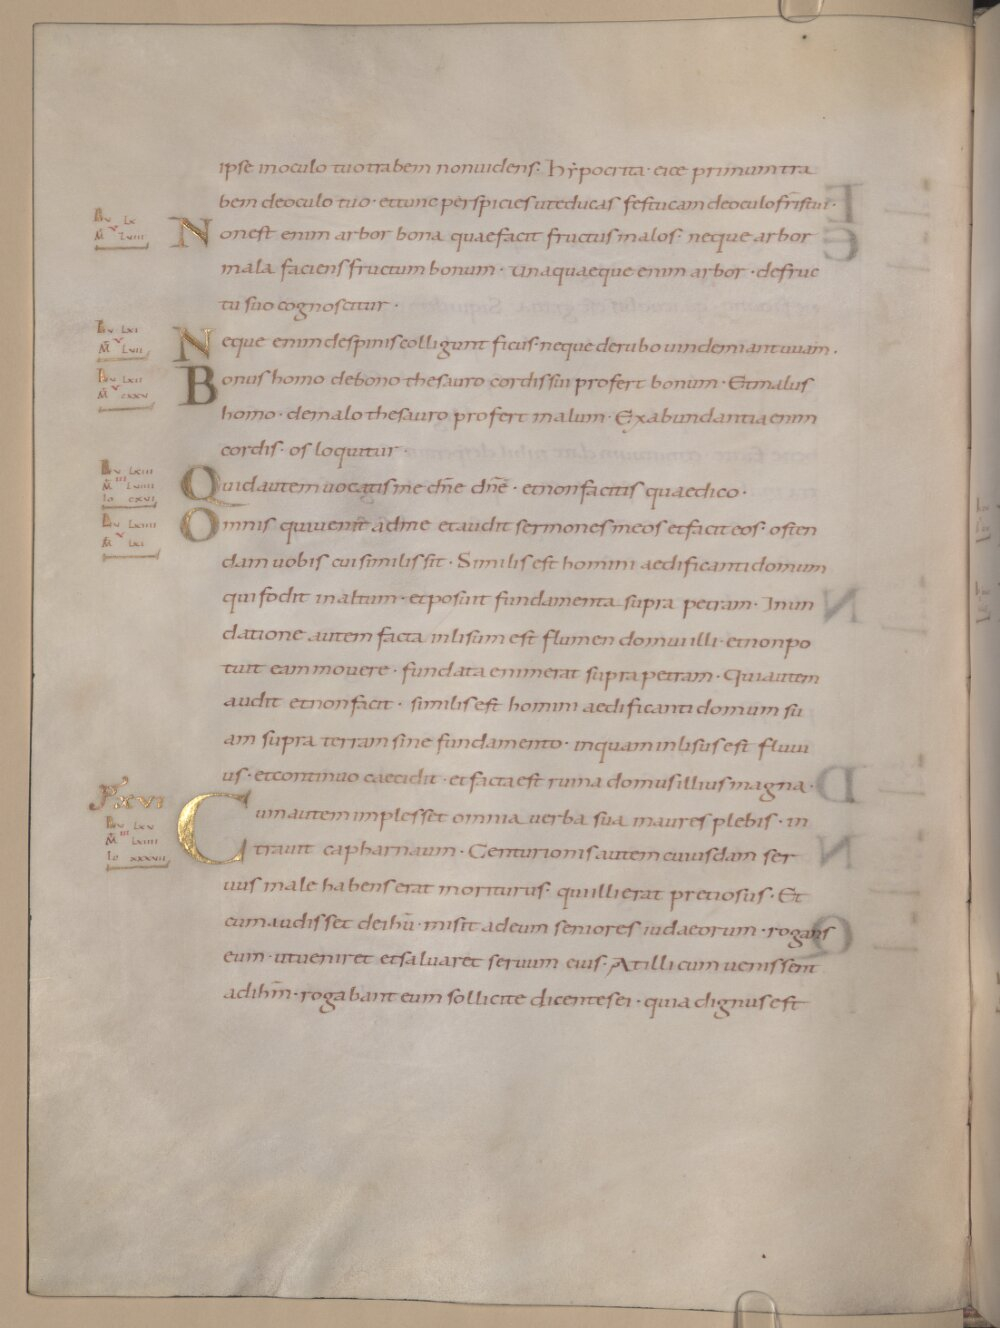 ipse in oculo tuo trabem non uidens· hẏpocrita· eice primum tra
bem de oculo tuo· et tunc perspicies ut educas festucam de oculo fr̄is tui·
Lu LX
M̄ LVIII
Non est enim arbor bona quae facit fructus malos· neque arbor
mala faciens fructum bonum· unaquaeque enim arbor· de fruc
tu suo cognoscitur·
Lu LXI
M̄ V LVII
Neque enim de spinis colligunt ficus· neque de rubo uindemiant uuam·
Lu LXII
M̄ V CXXV
Bonus homo de bono thesauro cordis sui profert bonum· Et malus
homo· de malo thesauro profert malum· Ex abundantia enim
cordis· os loquitur·
Lu LXIII
M̄ III LVIIII
Io CXVI
Quid autem uocatis me dn̄e dn̄e· et non facitis quae dico·
Lu LXIIII
M̄ V LXI
Omnis qui uenit ad me et audit sermones meos et facit eos· osten
dam uobis cui similis sit· Similis est homini aedificanti domum
qui fodit in altum· et posuit fundamenta supra petram· Inun
datione autem facta inlisum est flumen domui illi· et non po
tuit eam mouere· fundata enim erat supra petram· Qui autem
audit et non facit· similis est homini aedificanti domum su
am supra terram sine fundamento· in quam inlisus est fluui
us· et continuo caecidit· et facta est ruina domus illius magna·
XVI
Lu LXV
M̄ III LXIIII
Io XXXVII
Cum autem implesset omnia uerba sua in aures plebis· in
trauit capharnaum· Centurionis autem cuiusdam ser
uus male habens erat moriturus· qui illi erat pretiosus· Et
cum audisset de ihū· misit ad eum seniores iudaeorum· rogans
eum· ut ueniret et saluaret seruum eius· At illi cum uenissent
ad ihm̄· rogabant eum sollicite dicentes ei· quia dignus est